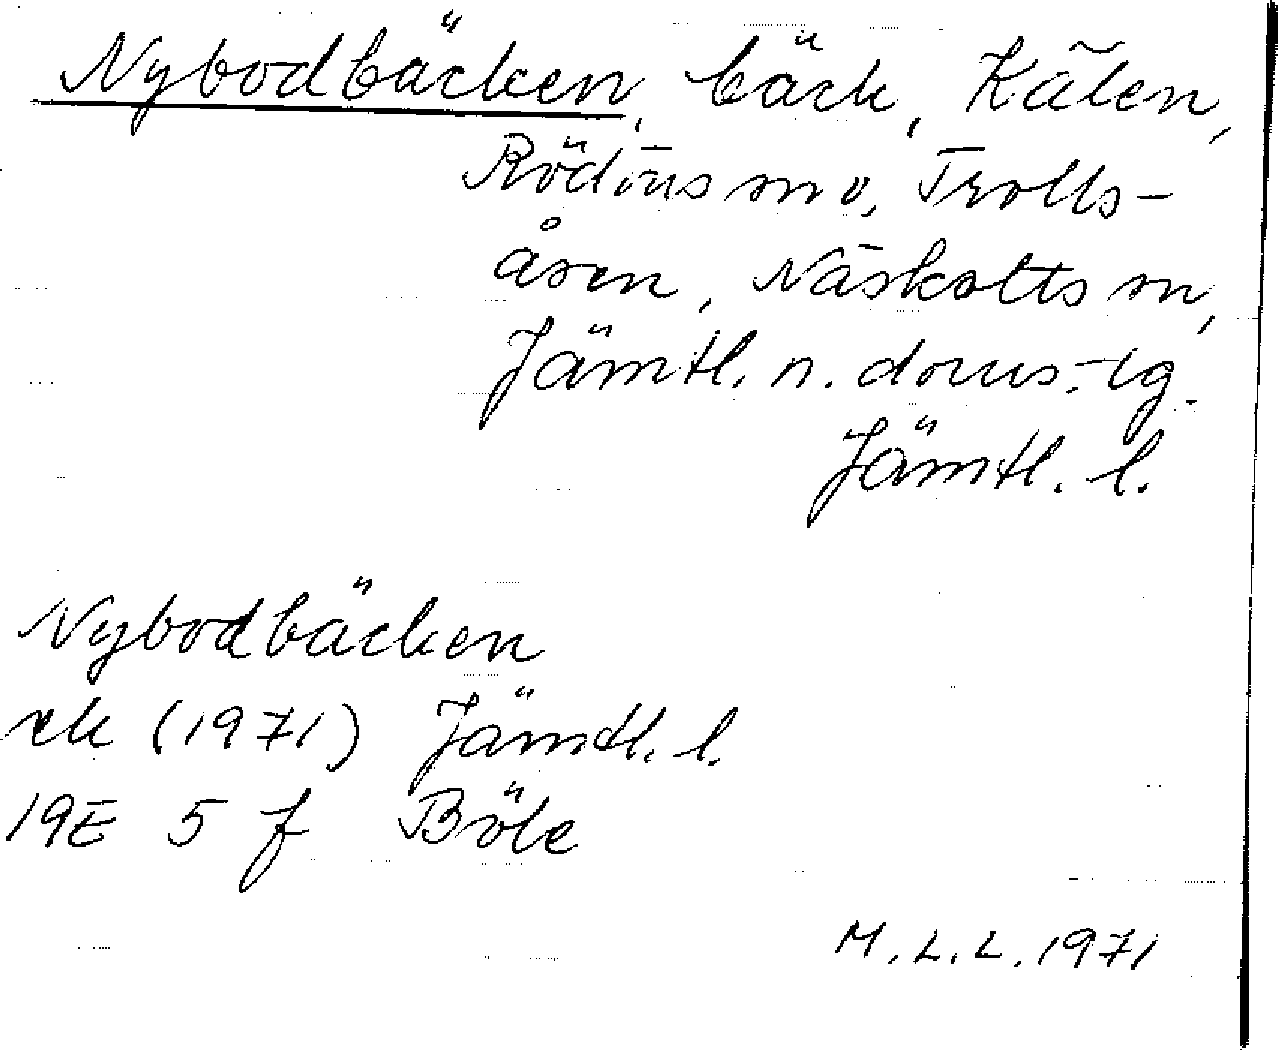 Nybodbäcken, bäck, Kälen,
Rödöns sn o, Trolls-
åsen, Näskotts sn,
Jämtl. n. doms.-lg.
Jämtl. l.
Nybodbäcken
ek (1971) Jämtl. l.
19E 5 f Böle
M.L.L. 1971